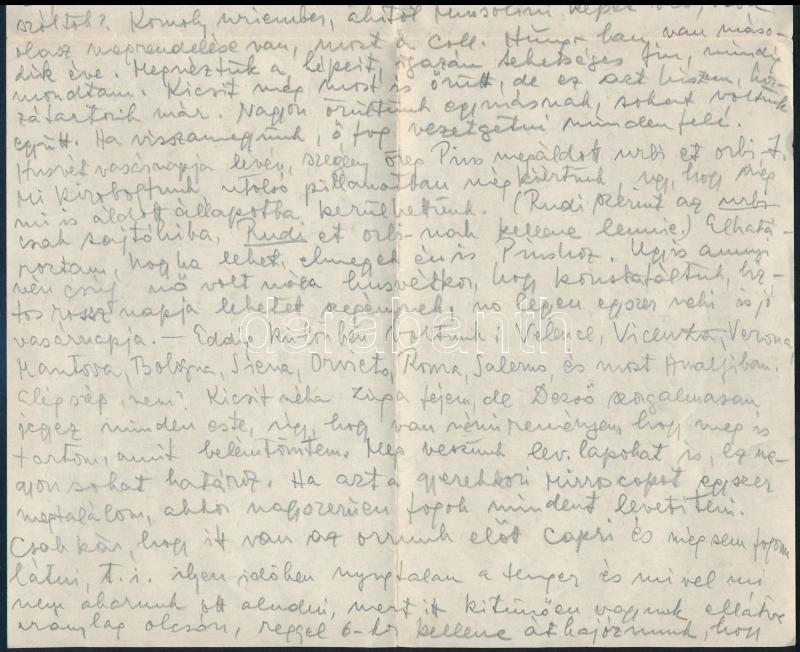 szóltok? Komoly wriember, akitől Mussolini képet
olasz megrendelése van, most a Coll. Hung.-ban van máso-
dik éve. Megnéztük a képeit, igazán tehetséges fiú, mindig
mondtam. Kicsit még most is őrült, de ez azt hiszem, hoz-
zátartozik már. Nagyon örültünk egymásnak, sokat voltunk
együtt. Ha visszamegyünk, ő fog vezetgetni mindenfelé.
Husvét vasárnapja lévén, szegény öreg Pius megáldott urbi et orbi-t.
Mi kirobogtunk utolsó pillanatban még kiértünk, ugy, hogy még
mi is áldott állapotba kerülhettünk. (Rudi szerint az urbi
csak sajtóhiba, Rudi et orbi-nak kellene lennie.) Elhatá-
roztam, hogy ha lehet, elmegyek én is Piushoz. Ugis annyi
vén csuf nő volt nála husvétkor, hogy konstatáltuk, biz-
tos rossz napja lehetett szegénynek, no legyen egyszer neki is jó
vasárnapja. — Eddig különben voltunk: Velence, Vicenza, Verona,
Mantova, Bologna, Siena, Orvieto, Roma, Salerno, és most Amalfiban.
Elég szép, nem? Kicsit néha zúg a fejem, de Dezső szorgalmasan
jegyez minden este, ugy, hogy van némi reményem, hogy meg is
tartom, amit belémtömtem. Meg veszünk lev.lapokat is, ez na-
gyon sokat határoz. Ha azt a gyerekkori mirroscopot egyszer
megtalálom, akkor nagyszerüen fogok mindent levetíteni.
Csak kár, hogy itt van az orrunk előtt Capri és még sem fogom
látni, t.i. ilyen időben nyugtalan a tenger és mivel mi
nem akarunk ott aludni, mert itt kitünően vagyunk ellátva
aránylag olcsón, reggel 6-kor kellene áthajóznunk, hogy
darabanth